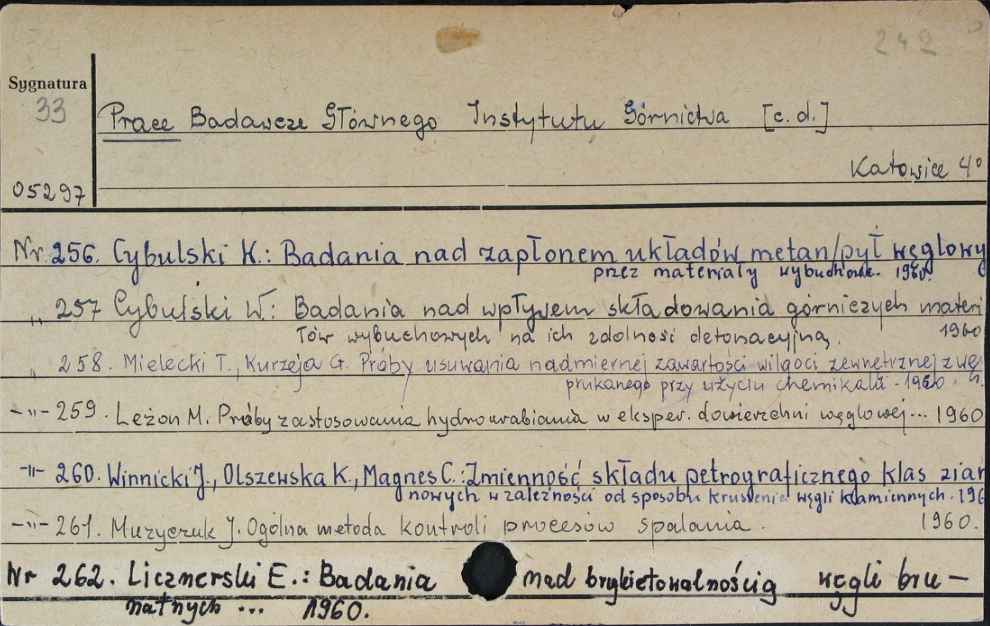 242
Sygnatura
33
Prace Badawcze Głównego Instytutu Górnictwa [c.d.]
Katowice 4°
05297
Nr. 256. Cybulski K.: Badania nad zapłonem układów metan/pył węglowy
przez materiały wybuchowe. 1960.
„ 257 Cybulski W.: Badania nad wpływem składowania górniczych materi
łów wybuchowych na ich zdolność detonacyjną. 1960
„ 258. Mielecki T., Kurzeja G. Próby usuwania nadmiernej zawartości wilgoci zewnętrznej z wę
płukanego przy użyciu chemikalii. 1960.
-„- 259. Leżoń M. Próby zastosowania hydrourabiania w eksper. dowierzchni węglowej... 1960
-"- 260. Winnicki J., Olszewska K., Magnes C.: Zmienność składu petrograficznego klas ziar
nowych w zależności od sposobu kruszenia węgli kamiennych. 196
-"- 261. Muzyczuk J. Ogólna metoda kontroli procesów spalania. 1960.
Nr 262. Licznerski E.: Badania nad brykietowalnością węgli bru-
natnych ... 1960.